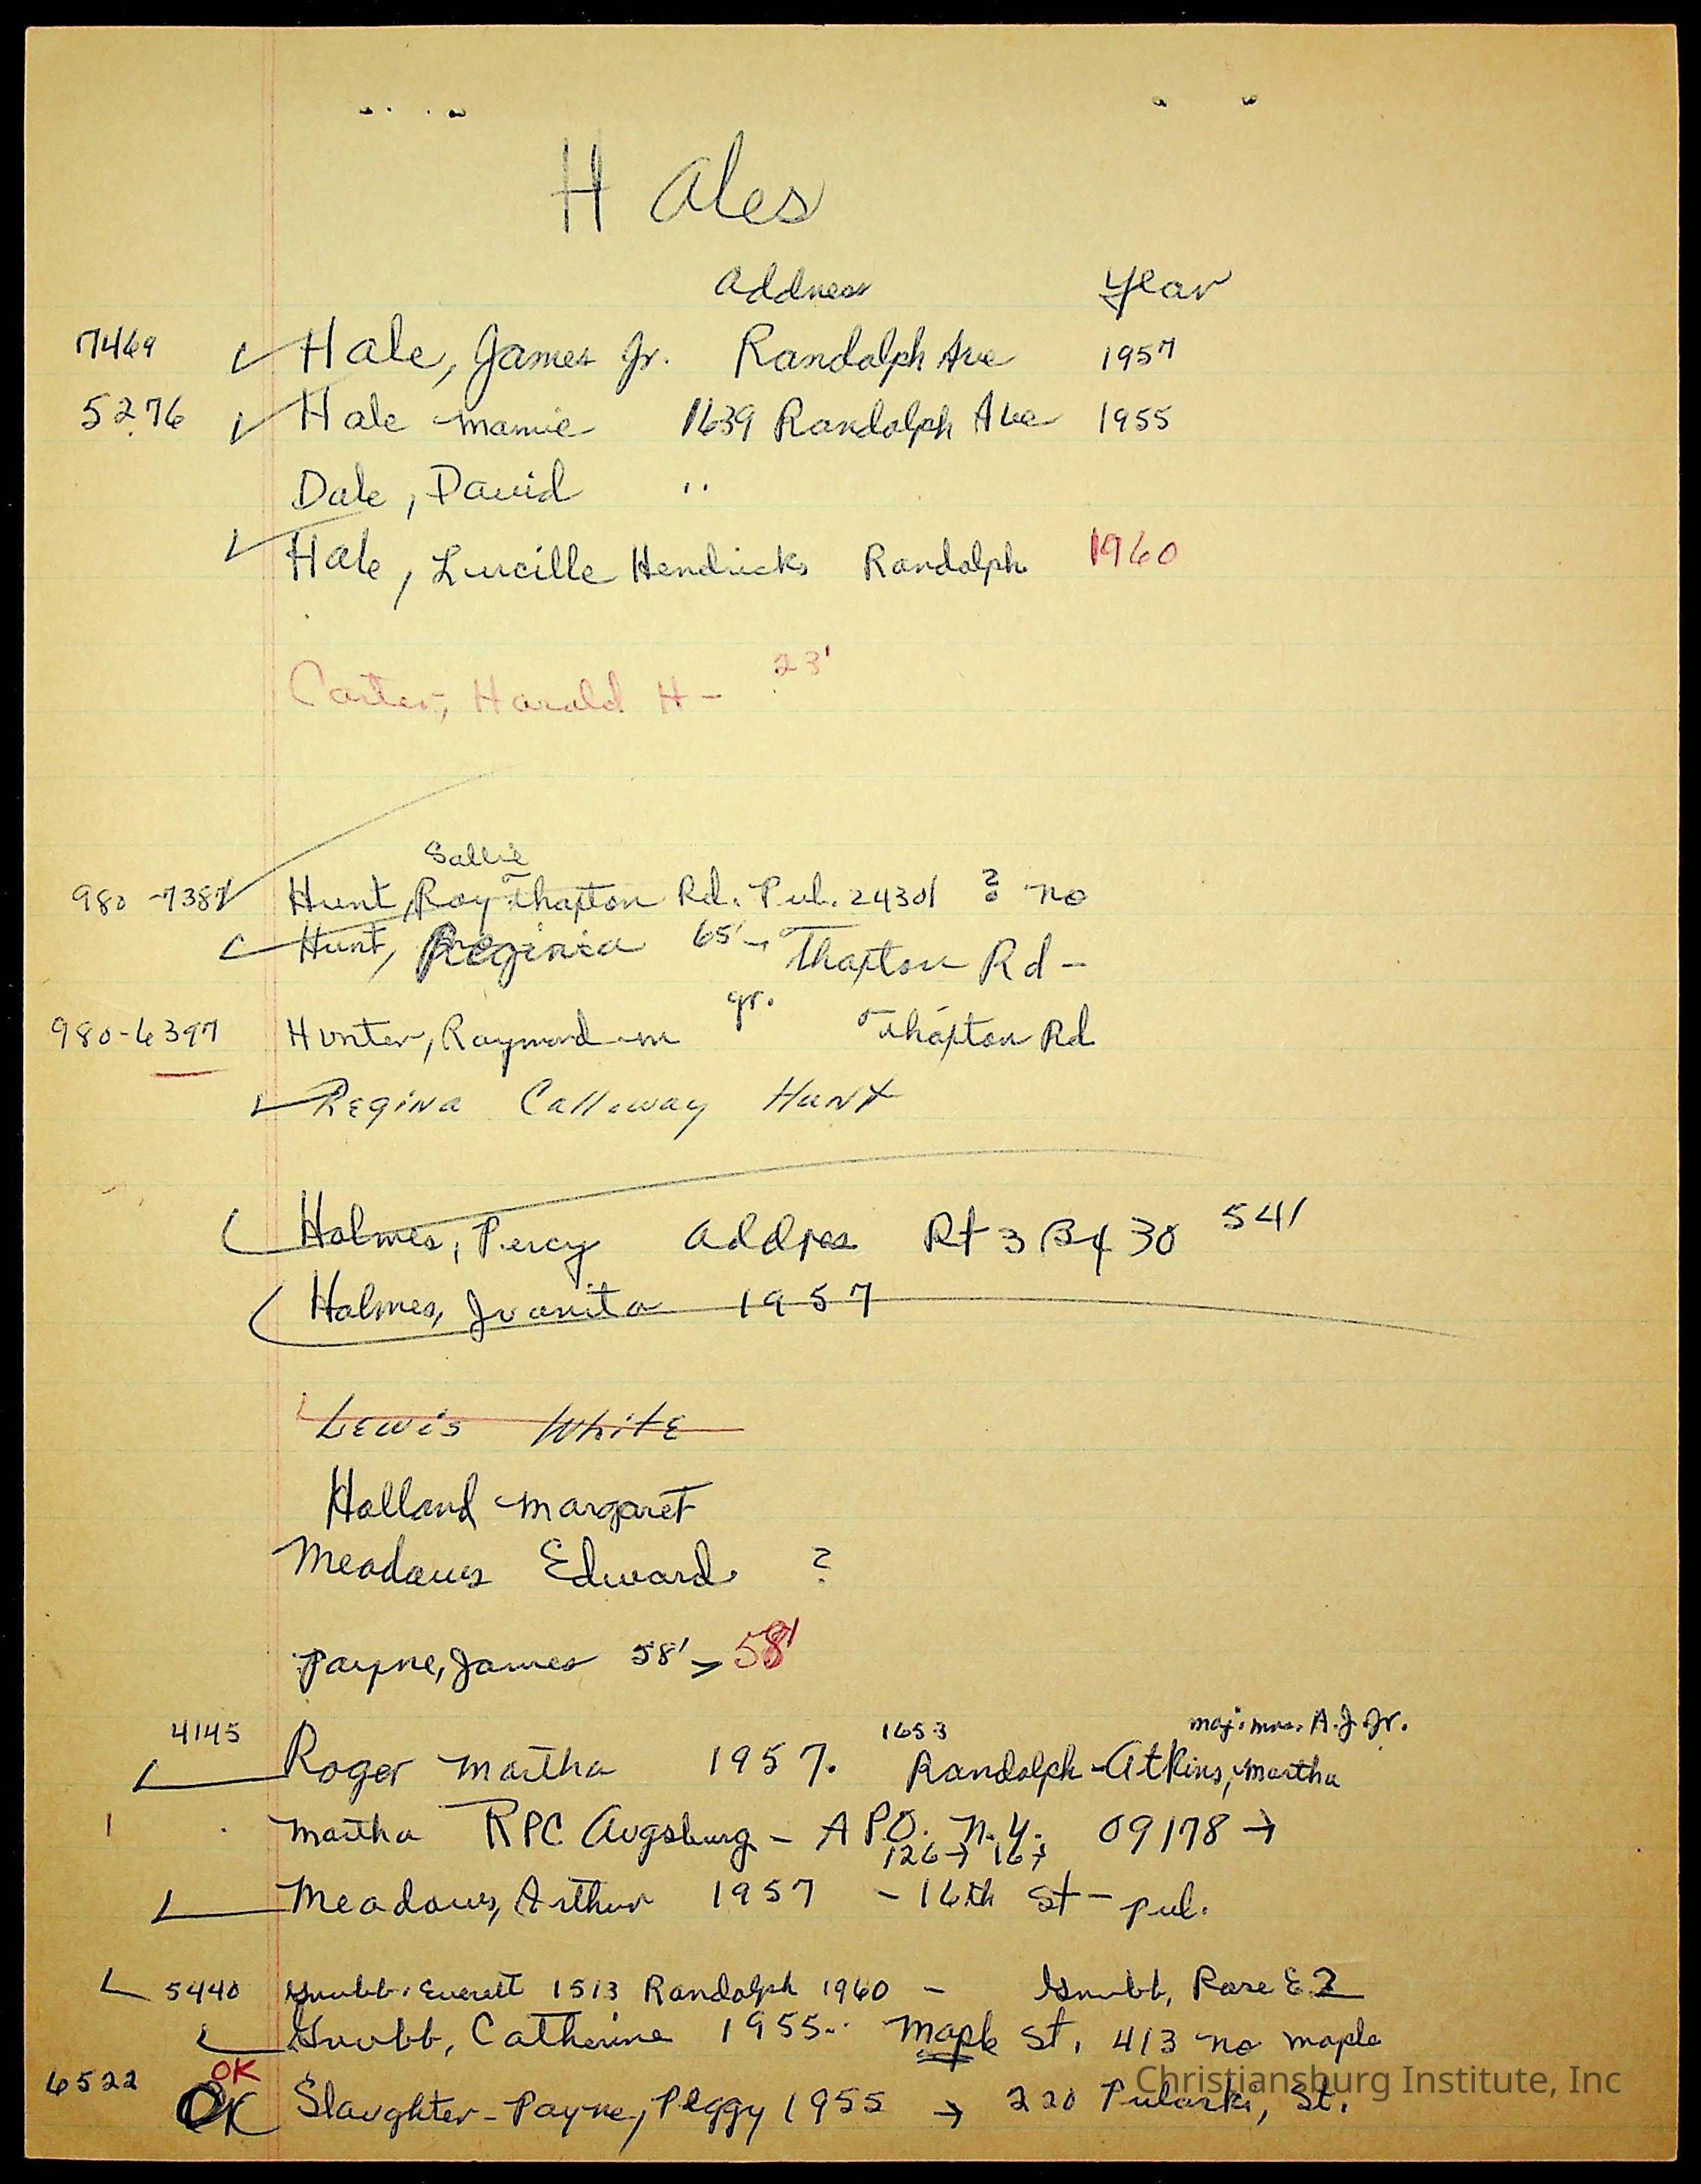 H ales
Address Year
7469 Hale, James Jr. Randolph Ave 1957
5276 Hale Mamie 1639 Randolph Ave 1955
Dale, David "
Hale, Lucille Hendricks Randolph 1960
Carter, Harald H - 23'
Sallie
980-7387 Hunt, Roy Thaxton Rd. Pul. 24301 ? no
Hunt, Reginia 65' Thaxton Rd -
gr.
980-6397 Hunter, Raymond m Thaxton Rd
Regina Calloway Hunt
Holmes, Percy Address Rt 3 Bx 30 541
Holmes, Juanita 1957
Lewis White
Holland Margaret
Meadows Edward ?
Payne, James 58' > 58'
4145 1653 maj. mrs. A. J. Jr.
Roger Martha 1957. Randolph - Atkins, Martha
Martha RPC Augsburg - APO. N.Y. 09178 →
126 → 16
Meadows, Arthur 1957 - 16th St - Pul.
5440 Grubb, Everett 1513 Randolph 1960 - Grubb, Rose E 2
Grubb, Catherine 1955 Maple St, 413 no maple
OK
6522 OK Slaughter-Payne, Peggy 1955 → 220 Pulaski, St.
Christiansburg Institute, Inc